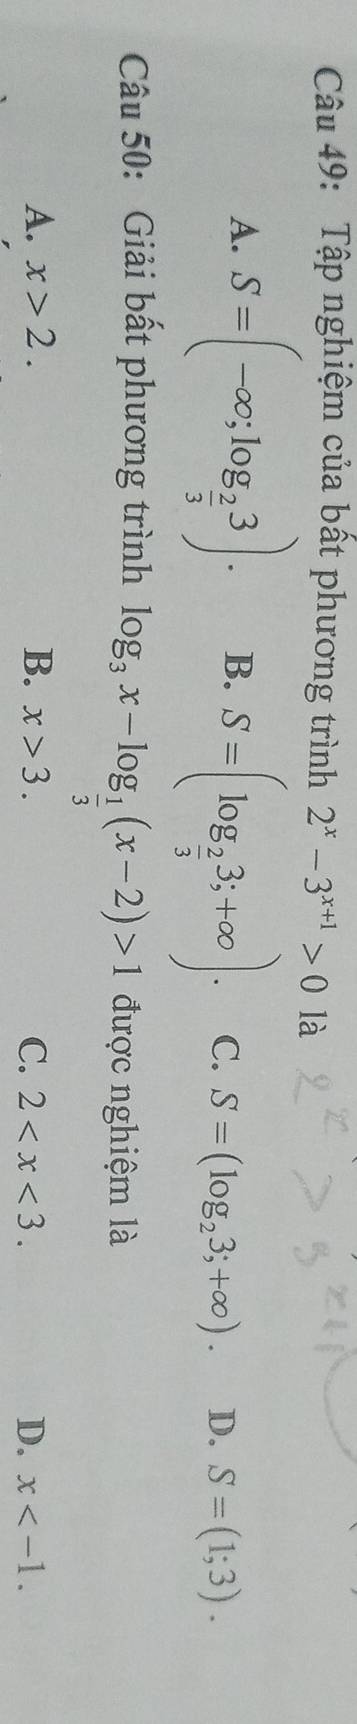 Câu 49: Tập nghiệm của bất phương trình 2^x − 3^{x+1} > 0 là 2^x > 3^{x+1}
A. S = (−∞; log_{2/3} 3). B. S = (log_{2/3} 3; +∞). C. S = (log_2 3; +∞). D. S = (1; 3).
Câu 50: Giải bất phương trình log_3 x − log_{1/3} (x − 2) > 1 được nghiệm là
A. x > 2. B. x > 3. C. 2 < x < 3. D. x < −1.